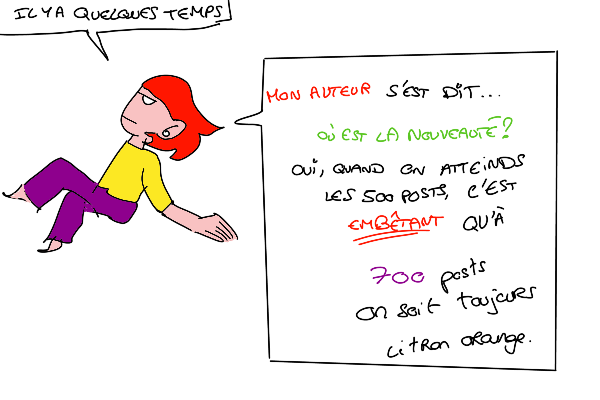 IL Y A QUELQUES TEMPS
MON AUTEUR S'EST DIT...
OÙ EST LA NOUVEAUTÉ?
OUI, QUAND ON ATTEINDS
LES 500 POSTS, C'EST
EMBÊTANT QU'À
700 posts
on soit toujours
citron orange.